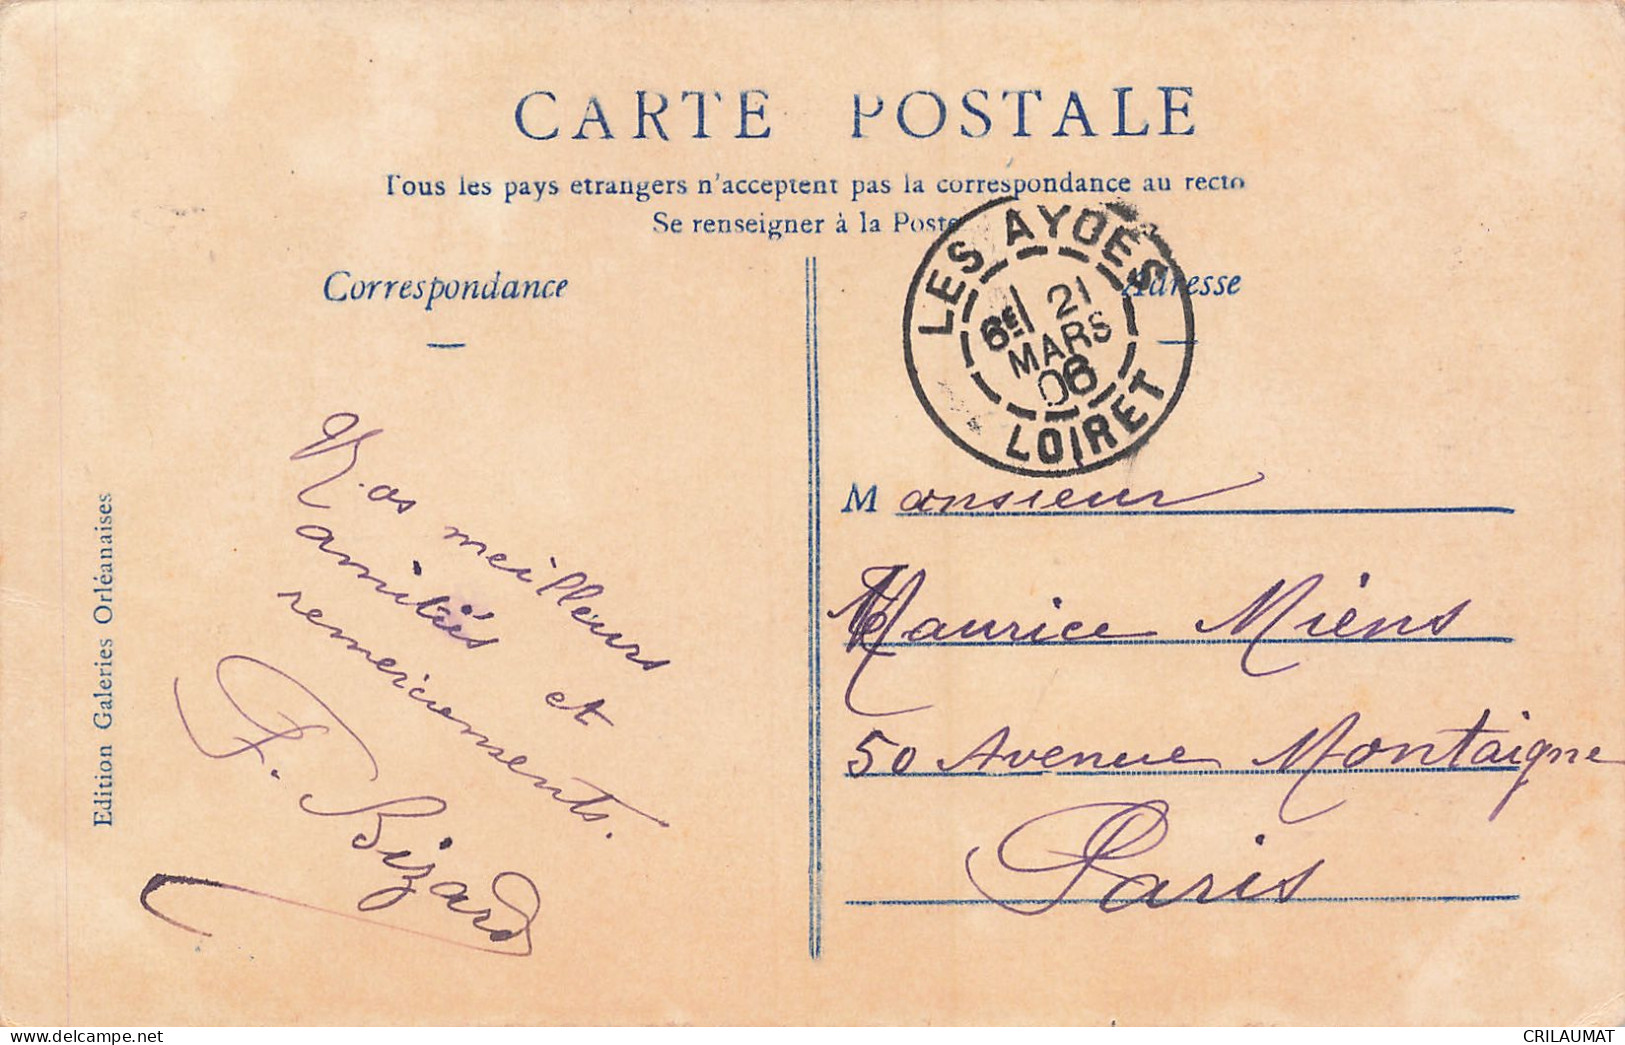 CARTE POSTALE
Tous les pays etrangers n'acceptent pas la correspondance au recto
Se renseigner à la Poste
Correspondance
Adresse
LES AYDES
6E 21
MARS
06
LOIRET
Nos meilleurs
amitiés et
remerciements.
F. Bizard
Monsieur
Maurice Miens
50 Avenue Montaigne
Paris
Edition Galeries Orléanaises
www.delcampe.net
CRILAUMAT